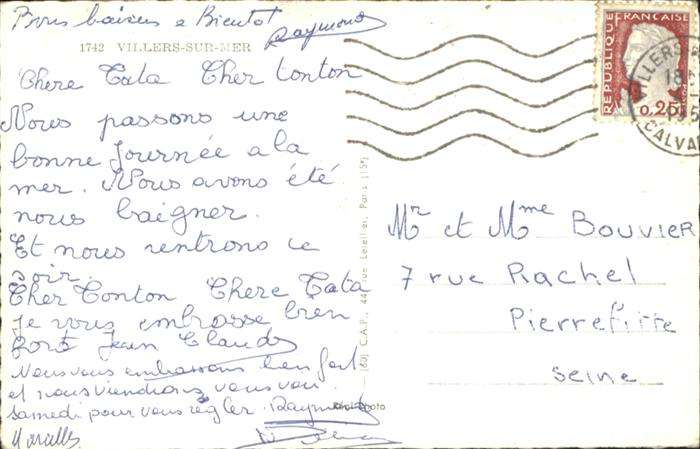 Bons baisers a Bientot
Raymond
1742 VILLERS-SUR-MER
Chere Tata Cher tonton
Nous passons une
bonne journée a la
mer. Nous avons été
nous baigner.
Et nous rentrons ce
soir.
Cher Tonton Chere Tata
je vous embrasse bien
fort Jean Claude
Nous vous embrassons bien fort
et nous viendrons vous voir
samedi pour vous régler. Raymond
Marcelle
RÉPUBLIQUE FRANÇAISE
0,25
VILLERS
18
CALVA
(60) C.A.P., 44, rue Letellier, Paris (15e)
Mr et Mme BOUVIER
7 rue Rachel
Pierrefitte
Seine